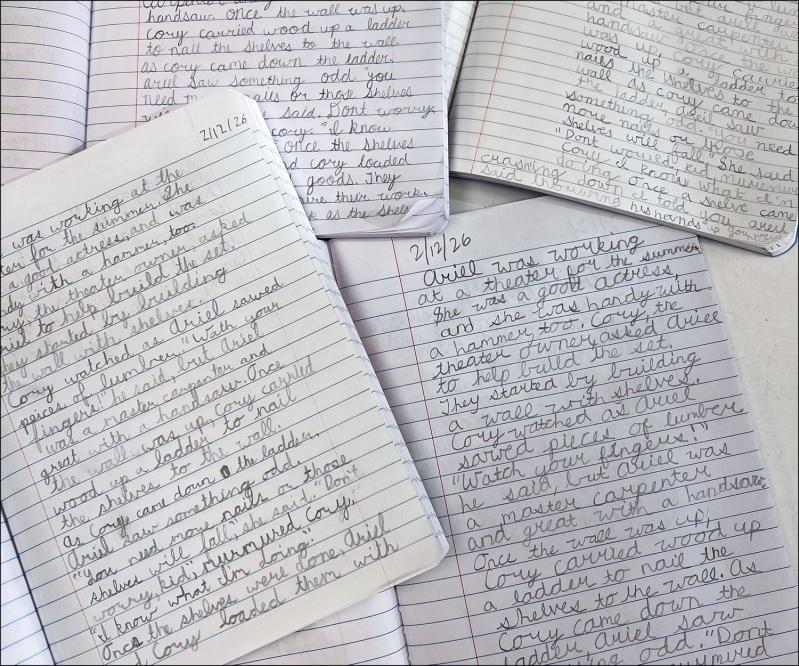 handsaw. Once the wall was up,
Cory carried wood up a ladder
to nail the shelves to the wall.
as cory came down the ladder,
ariel saw something odd. "you
need more nails or those shelves
said. Dont worry,
cory. "I know
Once the shelves
d cory loaded
goods. They
their work.
as the shel
master carpenter
and a great with
handsaw Once
was up, cory carrie
wood up a ladder to
nails the shelves to the
wall as cory came dow
the ladder ariel saw
something odd. "you need
more nails or those
shelves will fall." She said
"Dont worried kid
Cory I know what I'm
doing. Once a shelve came
crashing down I told you ariel
said throwing his hands up
2/12/26
was working at the
ter for the summer. She
a good actress, and was
ndy with a hammer, too.
ry, the theater owner, asked
riel to help build the set.
they started by building
the wall with shelves.
Cory watched as Ariel sawed
peices of lumber. "Wath your
fingers." he said, but Ariel
was a master carpenter and
great with a handsaw. Once
the wall was up, Cory carried
wood up a ladder to nail
the shelves to the wall.
As Cory came down the ladder,
Ariel saw something odd.
"You need more nails or those
shelves will fall," she said. "Don't
worry, kid," murmured Cory.
"I know what I'm doing."
Once the shelves were done, Ariel
d Cory loaded them with
2/12/26
Ariel was working
at a theater for the summer
She was a good actress,
and she was handy with
a hammer, too. Cory, the
theater owner asked Ariel
to help build the set.
They started by building
a wall with shelves.
Cory watched as Ariel
sawed pieces of lumber.
"Watch your fingers!"
he said, but Ariel was
a master carpenter
and great with a handsaw.
Once the wall was up,
Cory carried wood up
a ladder to nail the
shelves to the wall. As
Cory came down the
ladder, Ariel saw
odd. "Dont